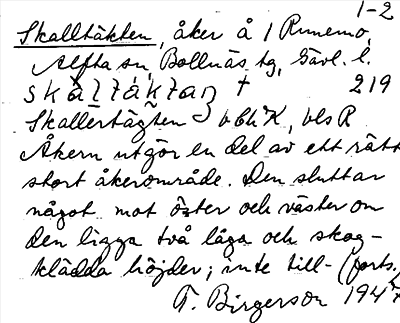 1-2
Skalltäkten, åker å 1 Runemo,
Alfta sn, Bollnäs tg, Gävl. l.
219
Skallertägten bblK, vls R
Åkern utgör en del av ett rätt
stort åkerområde. Den sluttar
något mot öster och väster om
den ligga två låga och skog-
klädda höjder; inte till- (forts.)
T. Birgerson